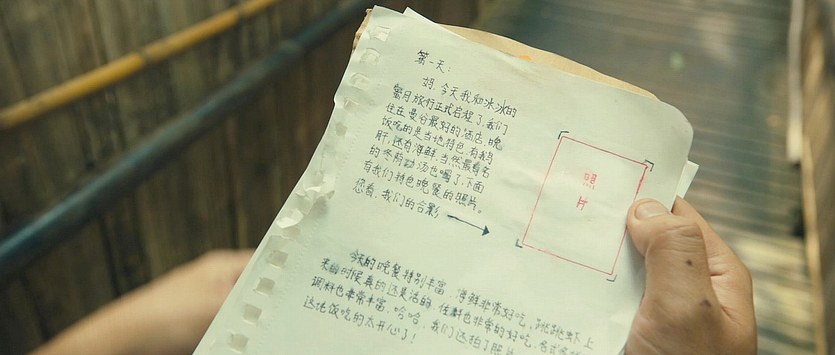 第一天:
妈,今天我和冰冰的
蜜月旅行正式启程了,我们
住在曼谷最好的酒店,晚
饭吃的是当地特色,有
肝,还有海鲜,当然最有名
的冬阴功汤也喝了,下面
有我们特色晚餐的照片。
您看,我们的合影
照
片
今天的晚餐特别丰富,海鲜非常好吃,跳跳虾上
来的时候真的还是活的,鲜也非常的好吃,各式各样
调料也非常丰富,哈哈,我们还拍了照片
饭吃的太开心了!